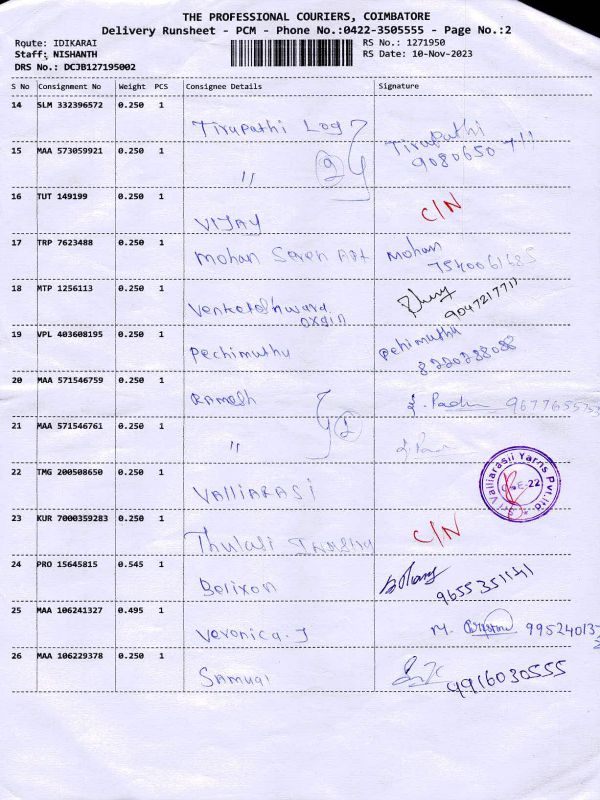 THE PROFESSIONAL COURIERS, COIMBATORE
Delivery Runsheet - PCM - Phone No.:0422-3505555 - Page No.:2
Route: IDIKARAI
RS No.: 1271950
Staff: NISHANTH
RS Date: 10-Nov-2023
DRS No.: DCJB127195002
S No Consignment No Weight PCS Consignee Details Signature
14 SLM 332396572 0.250 1 Tirupathi Log
15 MAA 573059921 0.250 1 " 2 Tirupathi
16 TUT 149199 0.250 1 VIJAY C/N
17 TRP 7623488 0.250 1 Mohan Mohan
18 MTP 1256113 0.250 1 9047217711
19 VPL 403608195 0.250 1 Pechimuthu 8220238088
20 MAA 571546759 0.250 1 Ramesh
21 MAA 571546761 0.250 1 " 2
22 TMG 200508650 0.250 1 VALLIARASI Sri Valliarasii Yarns Pvt.Ltd CBE-22
23 KUR 7000359283 0.250 1 Thulasi C/N
24 PRO 15645815 0.545 1
25 MAA 106241327 0.495 1 Veronica.J M.
26 MAA 106229378 0.250 1 Samual 9916030555